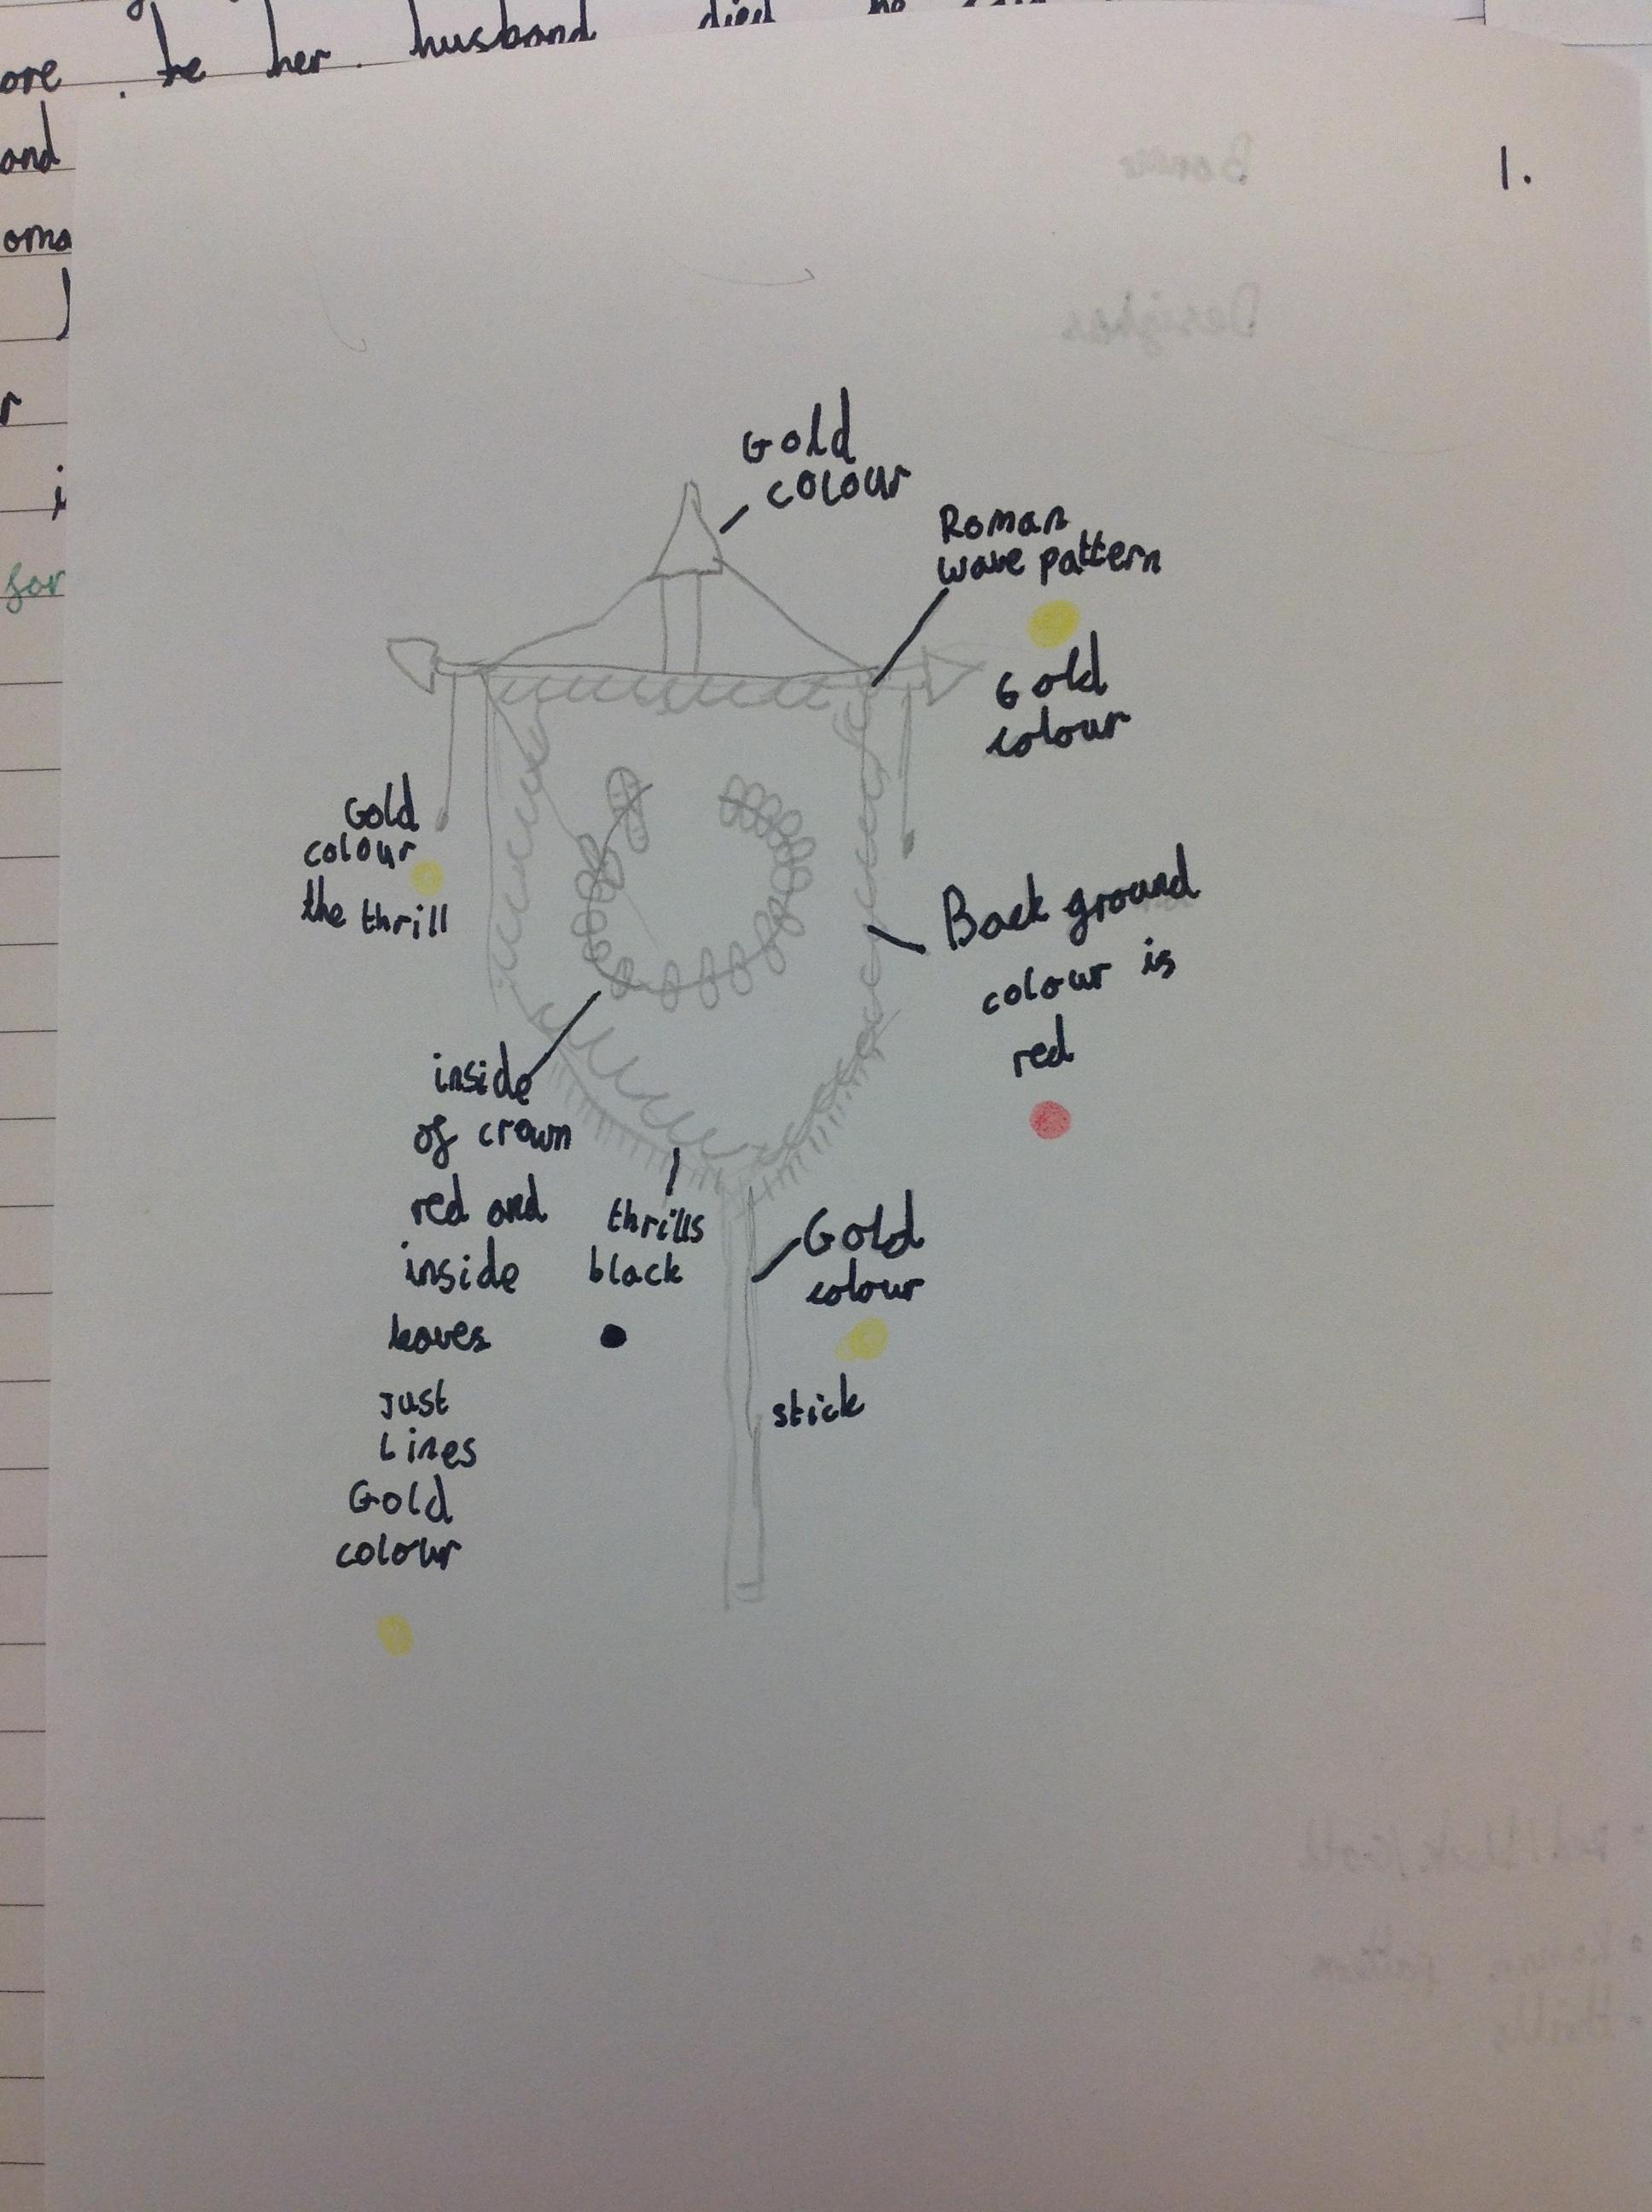 ore . he her . husband died he
and
oma
r
i
for
1.
Gold
colour
Roman
wave pattern
Gold
colour
Gold
colour
the thrill
Back ground
colour is
red
inside
of crown
red and
inside
leaves
Just
Lines
Gold
colour
thrills
black
Gold
colour
stick